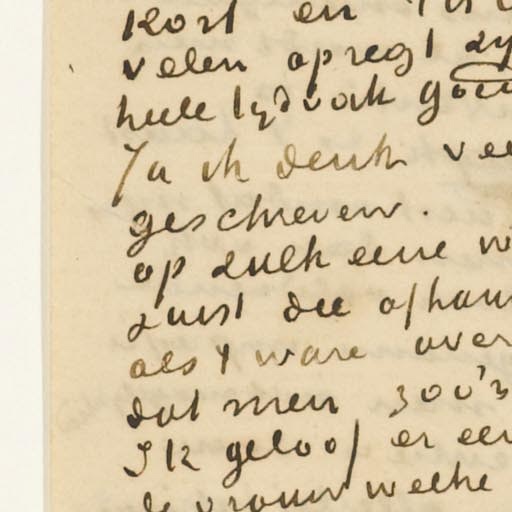 kort en
velen opregt zy
heele tijdvak goed
Ja ik denk vee
geschreven.
op zulk eene w
juist die afhan
als 't ware over
dat men zoo'n
Ik geloof er een
de vrouw welke